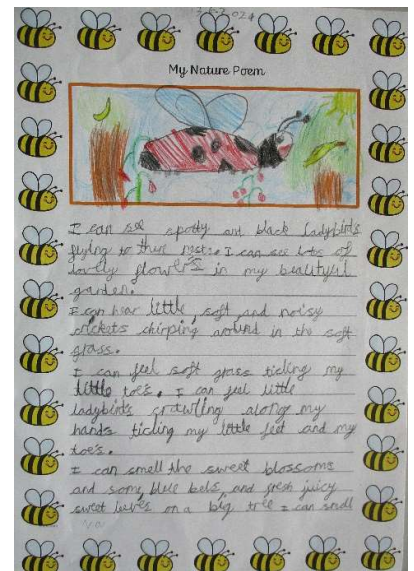 My Nature Poem
I can see spotty and black ladybirds
flying to their nests. I can see lots of
lovely flowers in my beautiful
garden.
I can hear little, soft and noisy
crickets chirping around in the soft
grass.
I can feel soft grass ticling my
little toe's. I can feel little
ladybirds crawling along my
hands ticling my little feet and my
toe's.
I can smell the sweet blossoms
and some blue bels, and fresh juicy
sweet leaves on a big tree I can smell